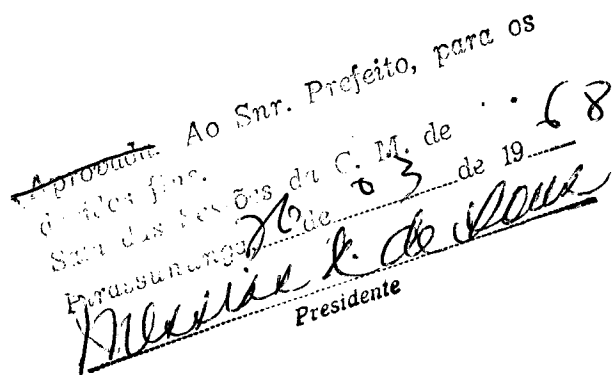 Aprovada. Ao Snr. Prefeito, para os
devidos fins.
Sala das Sessões da C. M. de
Pirassununga, 26 de 03 de 19 68
Presidente